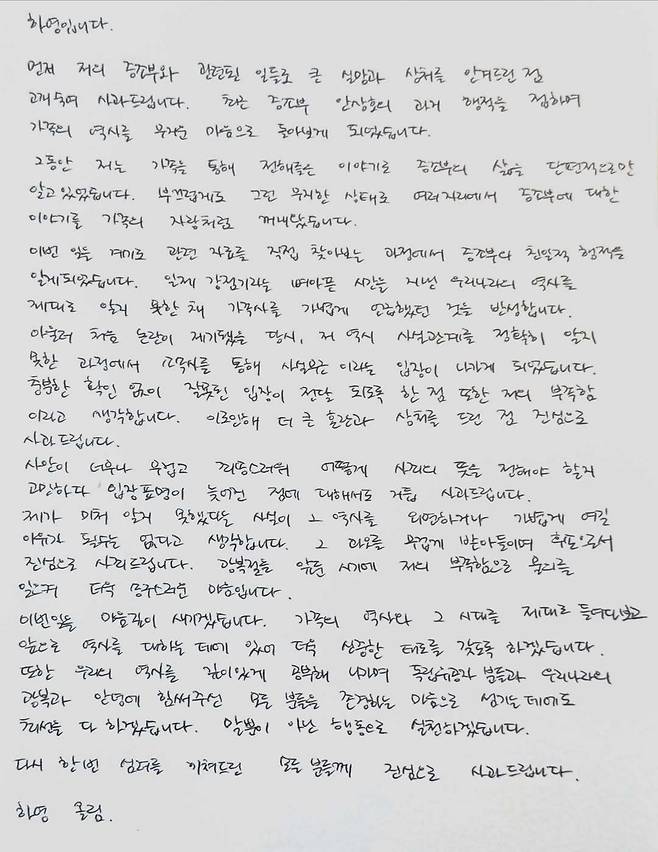 하영입니다.
먼저 저의 증조부와 관련된 일들로 큰 실망과 상처를 안겨드린 점
고개 숙여 사과드립니다. 최근 증조부 안상호의 과거 행적을 접하며
가족의 역사를 무거운 마음으로 돌아보게 되었습니다.
그동안 저는 가족을 통해 전해들은 이야기로 증조부의 삶을 단편적으로만
알고 있었습니다. 부끄럽게도 그런 무지한 상태로 여러자리에서 증조부에 대한
이야기를 가족의 자랑처럼 꺼내왔습니다.
이번 일을 계기로 관련 자료를 직접 찾아보는 과정에서 증조부의 친일적 행적을
알게되었습니다. 일제 강점기라는 뼈아픈 시간을 지닌 우리나라의 역사를
제대로 알지 못한 채 가족사를 가볍게 언급했던 것을 반성합니다.
아울러 처음 논란이 제기됐을 당시, 저 역시 사실관계를 정확히 알지
못한 과정에서 소속사를 통해 사실무근이라는 입장이 나가게 되었습니다.
충분한 확인 없이 잘못된 입장이 전달 되도록 한 점 또한 저의 부족함
이라고 생각합니다. 이로인해 더 큰 혼란과 상처를 드린 점 진심으로
사과드립니다.
사안이 너무나 무겁고 조심스러워 어떻게 사죄의 뜻을 전해야 할지
고민하다 입장표명이 늦어진 점에 대해서도 거듭 사과드립니다.
제가 미처 알지 못했다는 사실이 그 역사를 외면하거나 가볍게 여길
이유가 될수는 없다고 생각합니다. 그 과오를 무겁게 받아들이며 후손으로서
진심으로 사죄드립니다. 광복절을 앞둔 시기에 저의 부족함으로 물의를
일으켜 더욱 송구스러운 마음입니다.
이번일을 마음깊이 새기겠습니다. 가족의 역사와 그 시대를 제대로 들여다보고
앞으로 역사를 대하는 데에 있어 더욱 신중한 태도를 갖도록 하겠습니다.
또한 우리의 역사를 깊이있게 공부해 나가며 독립유공자 분들과 우리나라의
광복과 안녕에 힘써주신 모든 분들을 존경하는 마음으로 섬기는데에도
최선을 다 하겠습니다. 말뿐이 아닌 행동으로 실천하겠습니다.
다시 한번 심려를 끼쳐드린 모든 분들께 진심으로 사과드립니다.
하영 올림.